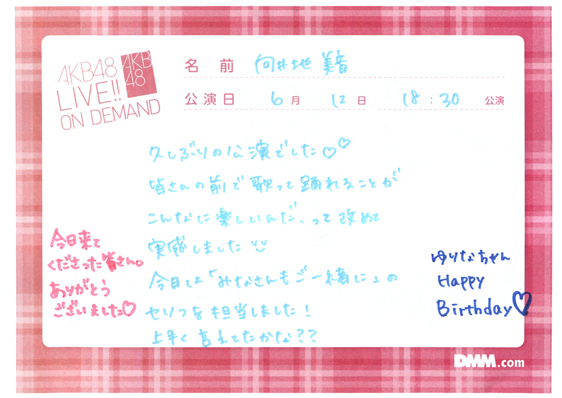 AKB48
LIVE!!
ON DEMAND
AKB
48
名前 向井地 美音
公演日 6月 12日 18:30 公演
久しぶりの公演でした♡♡
皆さんの前で歌って踊れることが
こんなに楽しいんだ、って改めて
実感しました
今日は「みなさんもご一緒に」の
セリフを担当しました!
上手く言えてたかな??
今日来て
くださった皆さん。
ありがとう
ございました♡
ゆりなちゃん
Happy
Birthday♡
DMM.com